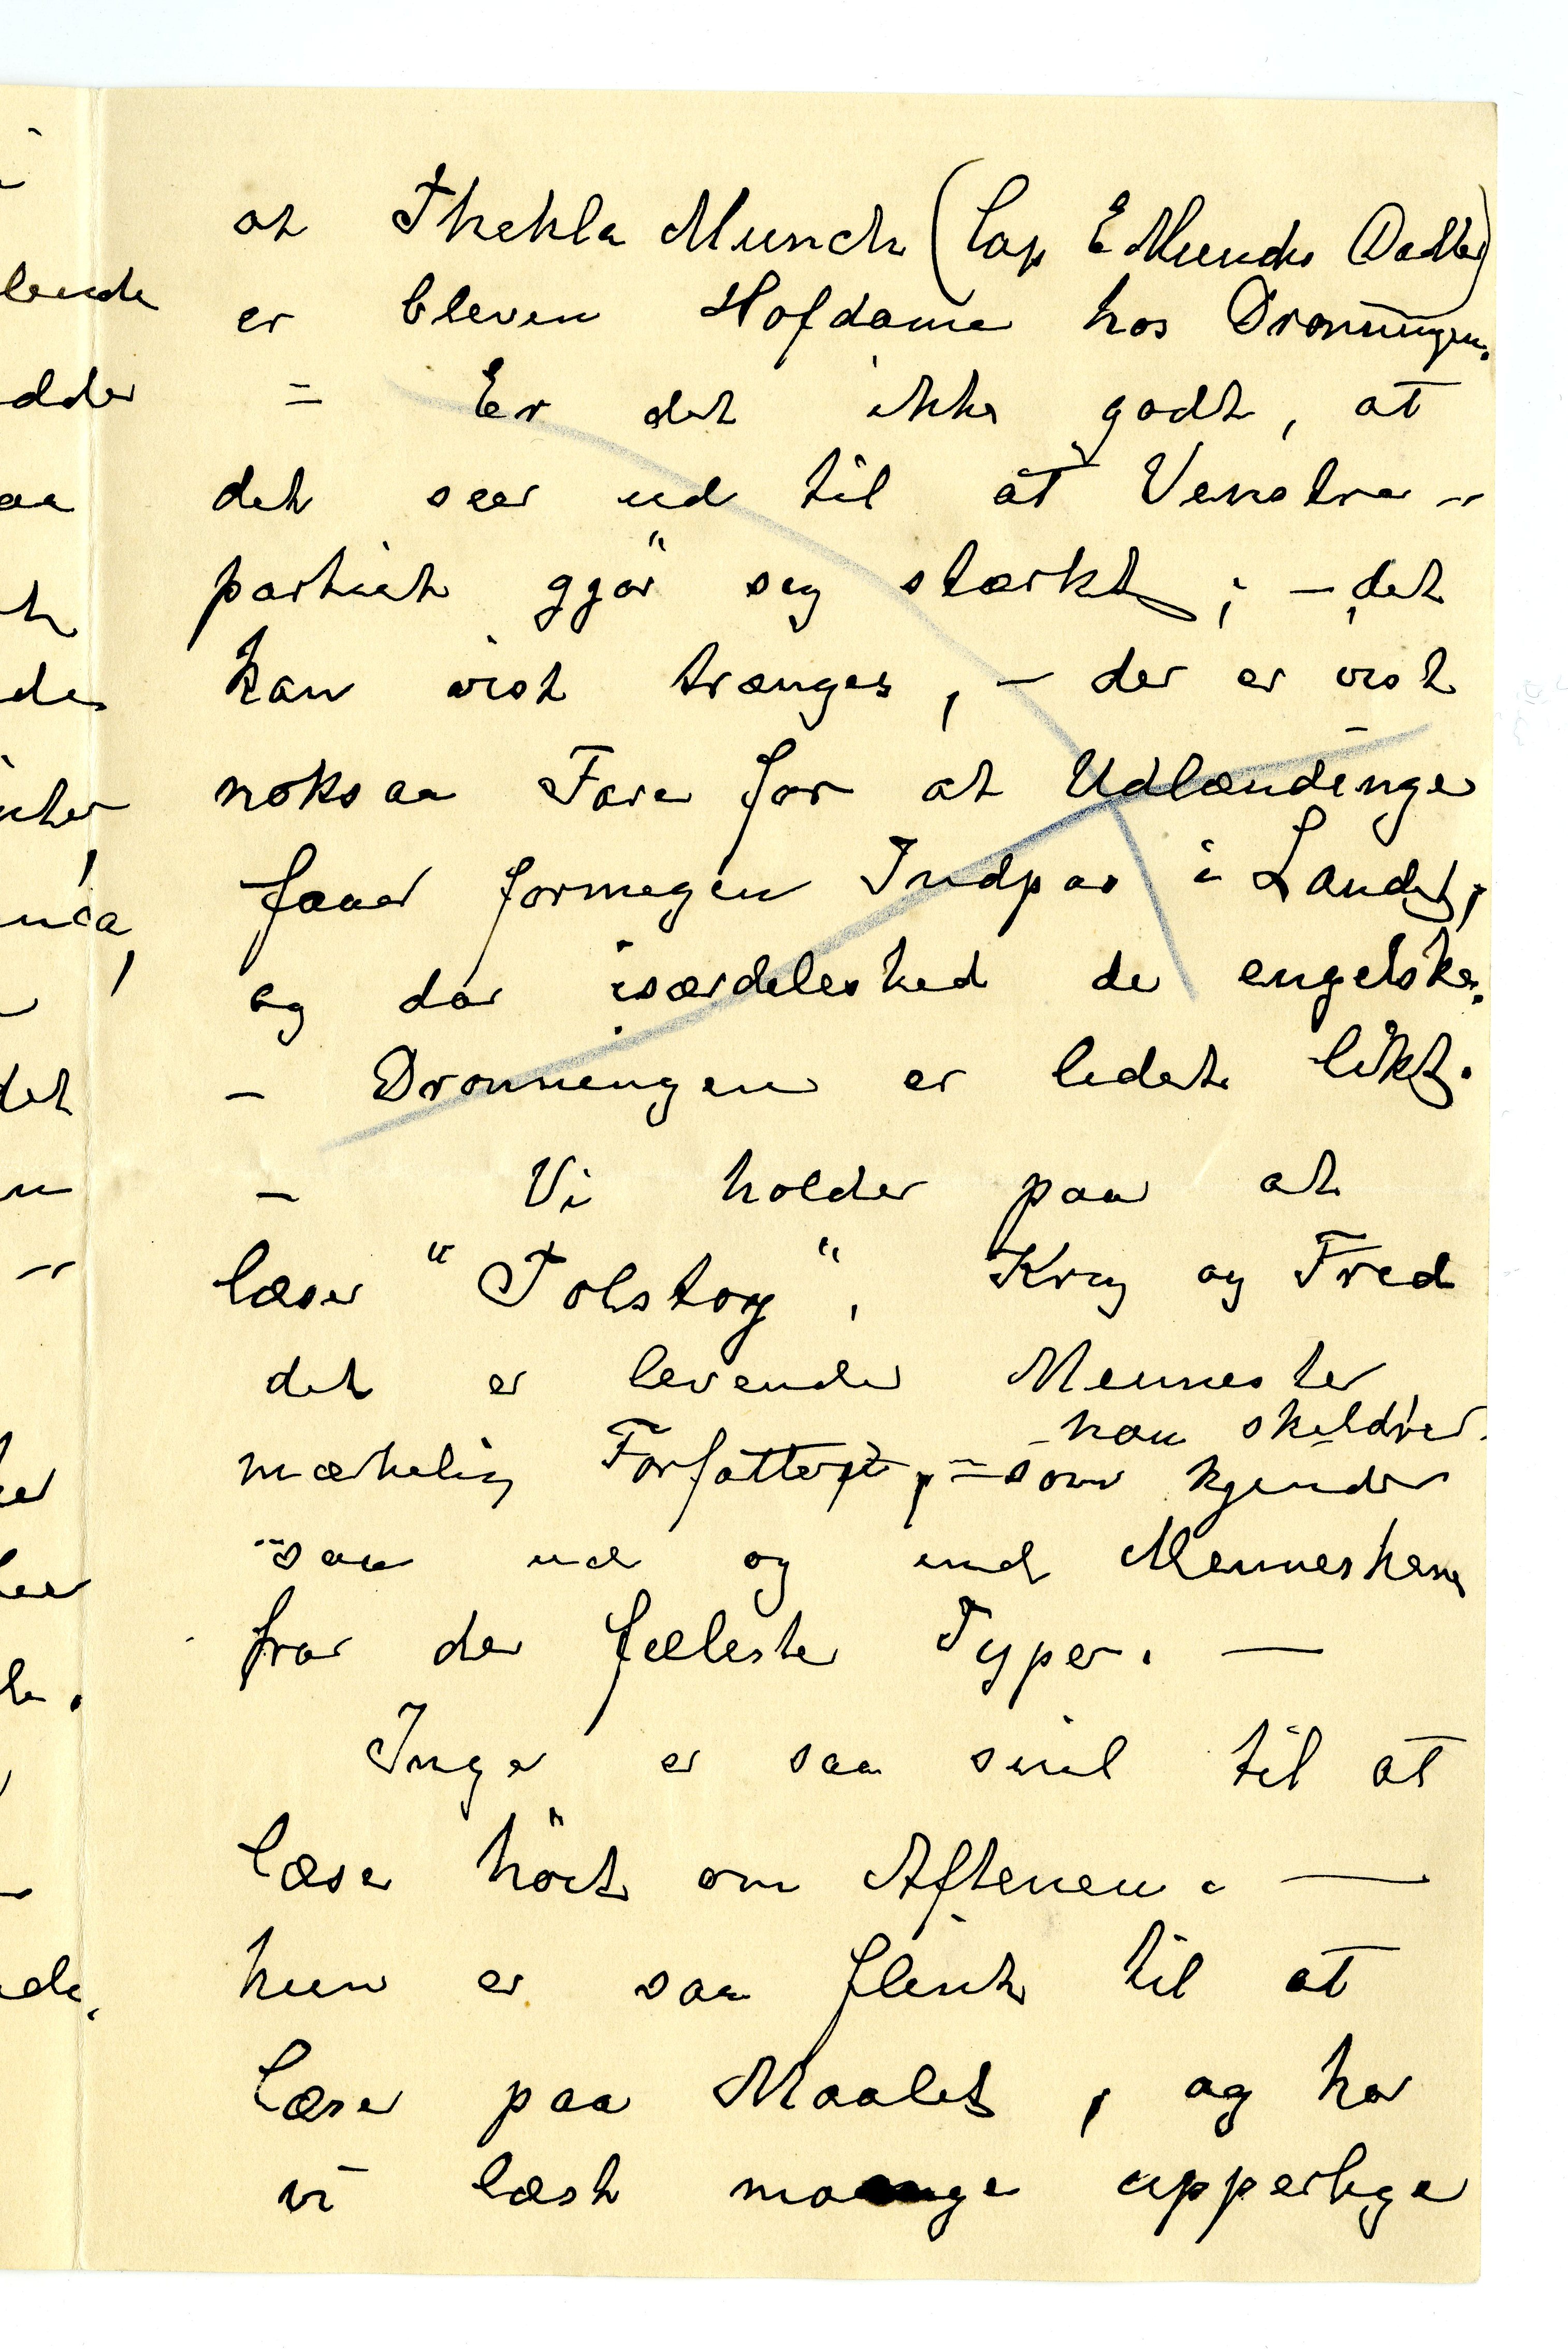 at Thekla Munch (Cap E Munchs Datter)
er bleven Hofdame hos Dronningen.
= Er det ikke godt, at
det seer ud til at Venstre-
partiet gjör sig stærkt; – det
kan vist trænges, – der er vist
noksaa Fare for at Udlændinge
faaer formegen Indpas i Landet,
og da isærdeleshed de engelske.
– Dronningen er ledet likt.
– Vi holder paa at
læse "Tolstoy", Krig og Fred
det er levende Mennesker
han skildrer.
mærkelig Forfatter, – som kjender
saa ud og ind Menneskene
fra de fæleste Typer. —
Inga er saa snil til at
læse höit om Aftenen. —
hun er saa flink til at
læse paa Maalet, og har
vi læst mange ypperlige
lende
dder
aa
det